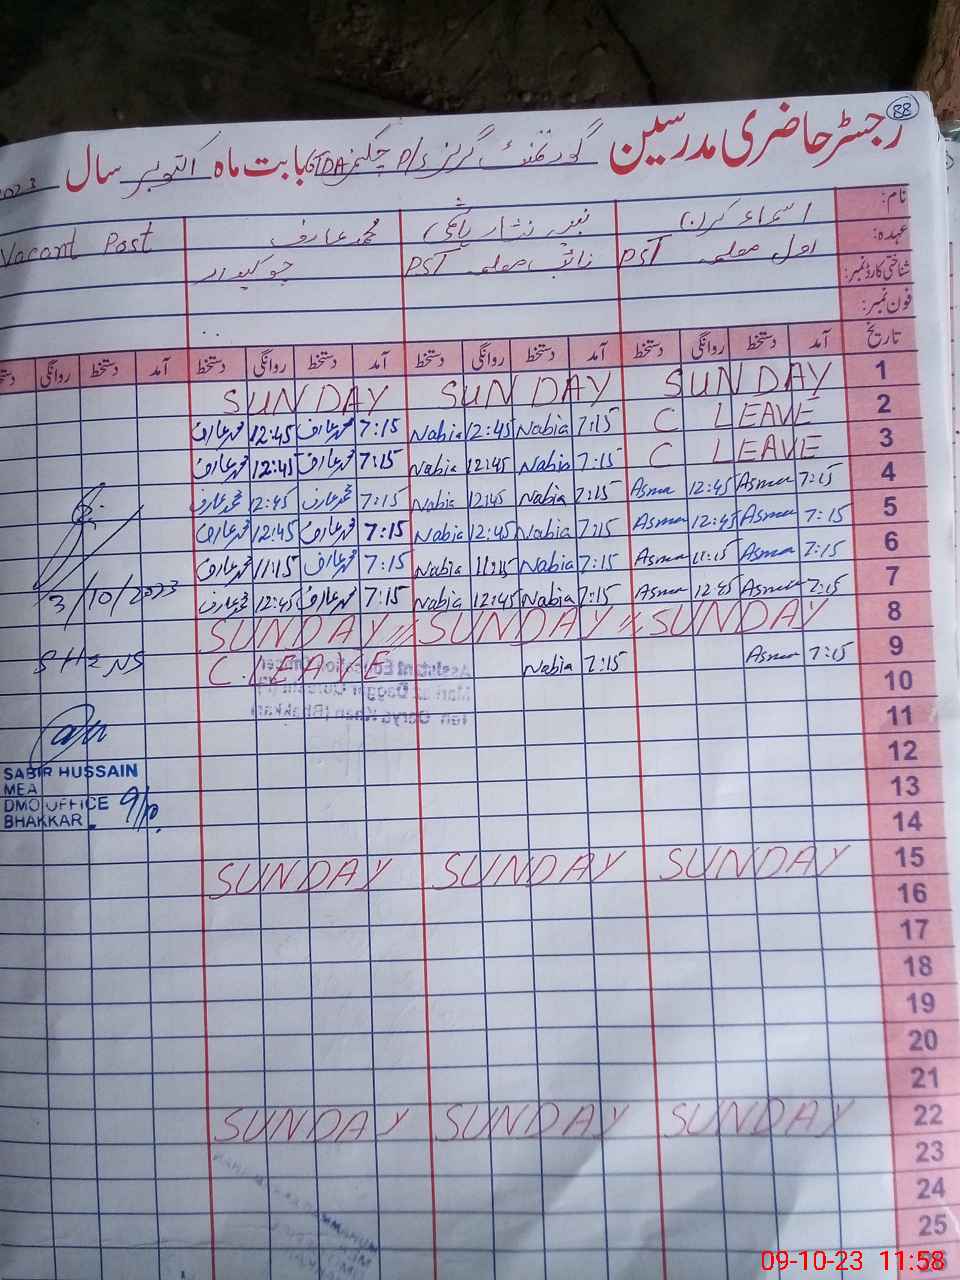 88
رجسٹر حاضری مدرسین گورنمنٹ گرلز P/S چکنمبر TDA بابت ماہ اکتوبر سال 2023
نام: اسماء کرن محمد عارف Vacant Post
عہدہ: اول معلمہ PST نائب معلمہ PST چوکیدار
شناختی کارڈ نمبر:
فون نمبر:
تاریخ آمد دستخط روانگی دستخط آمد دستخط روانگی دستخط آمد دستخط روانگی دستخط آمد دستخط روانگی
1 SUNDAY SUNDAY SUNDAY
2 C LEAVE 7:15 Nabia 12:45 Nabia 7:15 محمد عارف 12:45 محمد عارف
3 C LEAVE 7:15 Nabia 12:45 Nabia 7:15 محمد عارف 12:45 محمد عارف
4 7:15 Asma 12:45 Asma 7:15 Nabia 12:45 Nabia 7:15 محمد عارف 12:45 محمد عارف
5 7:15 Asma 12:45 Asma 7:15 Nabia 12:45 Nabia 7:15 محمد عارف 12:45 محمد عارف
6 7:15 Asma 11:15 Asma 7:15 Nabia 11:15 Nabia 7:15 محمد عارف 11:15 محمد عارف
7 7:15 Asma 12:45 Asma 7:15 Nabia 12:45 Nabia 7:15 محمد عارف 12:45 محمد عارف
3/10/2023
8 SUNDAY SUNDAY SUNDAY
9 7:15 Asma 7:15 Nabia C.LEAVE
10
11
12
SABIR HUSSAIN
MEA
DMO OFFICE
BHAKKAR
13
14
15 SUNDAY SUNDAY SUNDAY
16
17
18
19
20
21
22 SUNDAY SUNDAY SUNDAY
23
24
25
26
09-10-23 11:58